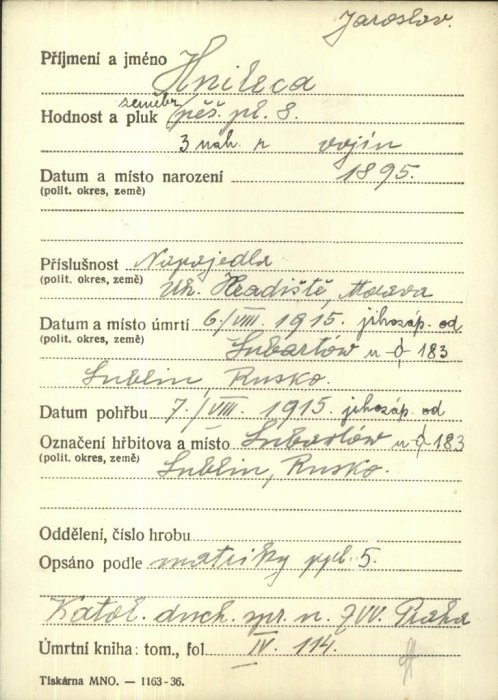 Jaroslav.
Příjmení a jméno Hnilica
zeměbr.
Hodnost a pluk pěš. pl. 8.
3 náh. r vojín
Datum a místo narození 1895.
(polit. okres, země)
Příslušnost Napajedla
(polit. okres, země) Uh. Hradiště, Morava
Datum a místo úmrtí 6./VIII. 1915. jihozáp. od
(polit. okres, země) Lubartów u 183
Lublin, Rusko.
Datum pohřbu 7./VIII. 1915. jihozáp. od
Označení hřbitova a místo Lubartów u 183
(polit. okres, země) Lublin, Rusko.
Oddělení, číslo hrobu
Opsáno podle matriky ppl. 5.
Katol. duch. spr. n. ZVV. Praha
Úmrtní kniha: tom., fol. IV. 114.
Tiskárna MNO. — 1163-36.